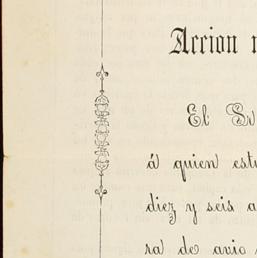 Accion
El Sr
á quien
diez y seis
ra de avio